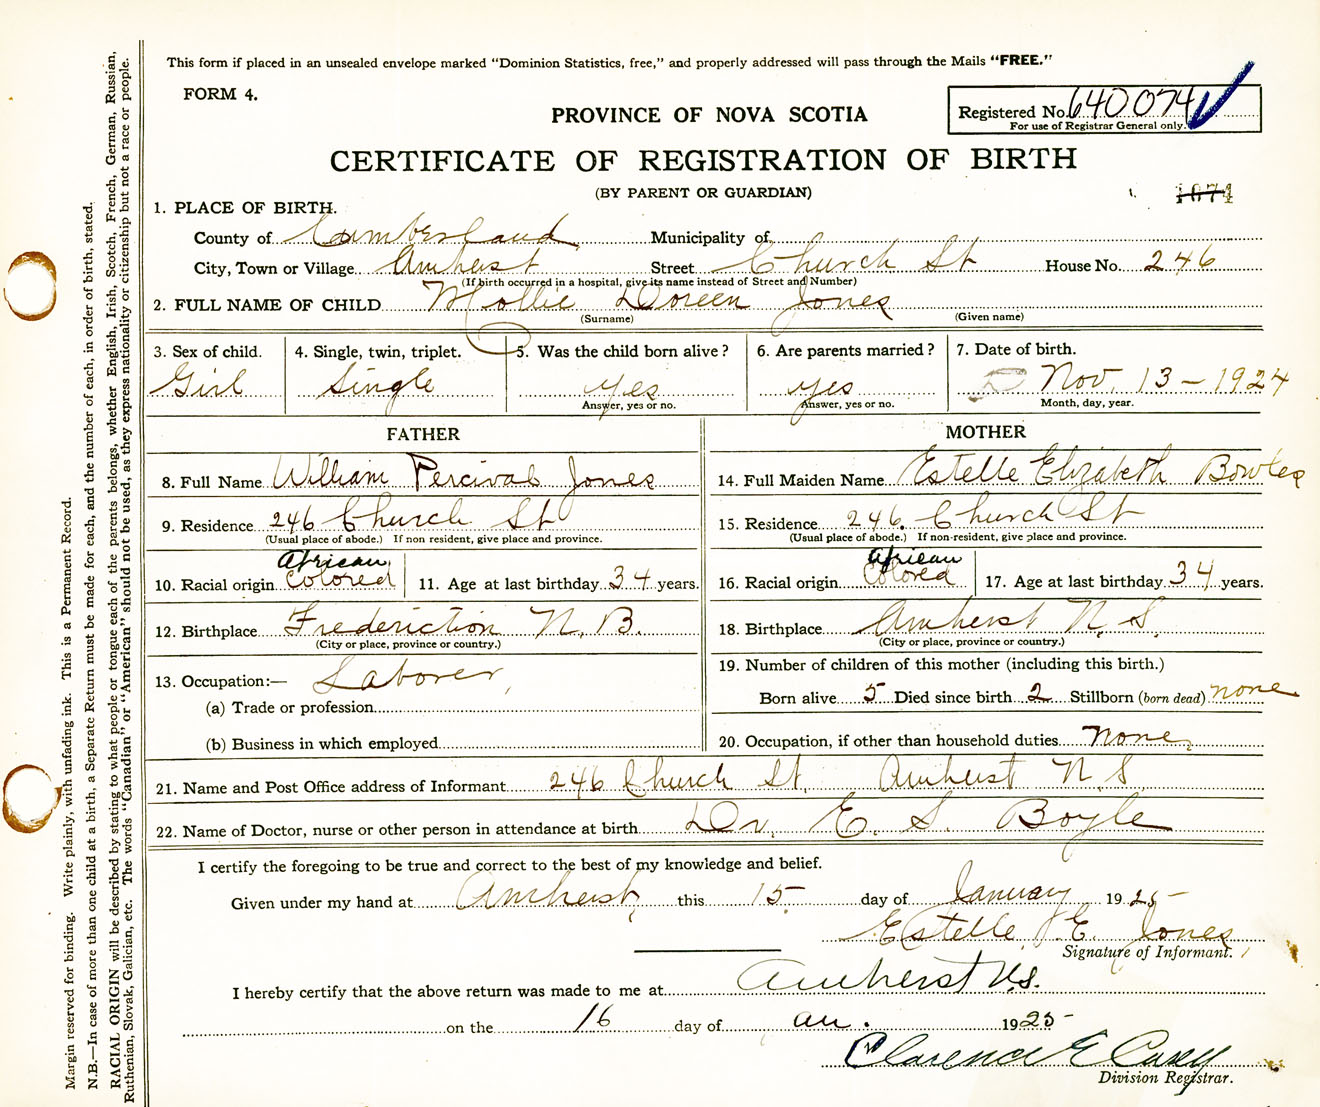 This form if placed in an unsealed envelope marked "Dominion Statistics, free," and properly addressed will pass through the Mails "FREE."
FORM 4.
PROVINCE OF NOVA SCOTIA
Registered No. 640074
For use of Registrar General only.
CERTIFICATE OF REGISTRATION OF BIRTH
(BY PARENT OR GUARDIAN)
1. PLACE OF BIRTH.
County of Cumberland Municipality of
City, Town or Village Amherst Street Church St House No. 246
(If birth occurred in a hospital, give its name instead of Street and Number)
2. FULL NAME OF CHILD Mollie Doreen Jones
(Surname) (Given name)
3. Sex of child. 4. Single, twin, triplet. 5. Was the child born alive? 6. Are parents married? 7. Date of birth.
Girl Single yes yes Nov. 13 - 1924
Answer, yes or no. Answer, yes or no. Month, day, year.
FATHER
8. Full Name William Percival Jones
9. Residence 246 Church St
(Usual place of abode.) If non resident, give place and province.
African
10. Racial origin Colored 11. Age at last birthday 34 years.
12. Birthplace Frederiction N.B.
(City or place, province or country.)
13. Occupation:— Laborer,
(a) Trade or profession
(b) Business in which employed
MOTHER
14. Full Maiden Name Estelle Elizabeth Bowles
15. Residence 246. Church St
(Usual place of abode.) If non-resident, give place and province.
African
16. Racial origin Colored 17. Age at last birthday 34 years.
18. Birthplace Amherst N.S.
(City or place, province or country.)
19. Number of children of this mother (including this birth.)
Born alive 5 Died since birth 2 Stillborn (born dead) none
20. Occupation, if other than household duties None,
21. Name and Post Office address of Informant 246 Church St. Amherst N.S
22. Name of Doctor, nurse or other person in attendance at birth Dr. E. S. Boyle
I certify the foregoing to be true and correct to the best of my knowledge and belief.
Given under my hand at Amherst, this 15 day of January 1925-
Estelle E. Jones
Signature of Informant.
I hereby certify that the above return was made to me at Amherst N.S.
on the 16 day of an. 1925-
Clarence E Casey
Division Registrar.
Margin reserved for binding. Write plainly, with unfading ink. This is a Permanent Record.
N.B.—In case of more than one child at a birth, a Separate Return must be made for each, and the number of each, in order of birth, stated.
RACIAL ORIGIN will be described by stating to what people or tongue each of the parents belongs, whether English, Irish, Scotch, French, German, Russian,
Ruthenian, Slovak, Galician, etc. The words "Canadian" or "American" should not be used, as they express nationality or citizenship but not a race or people.